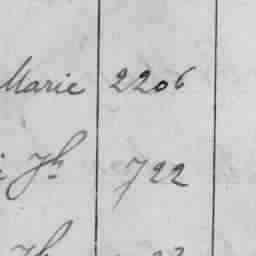 Marie 2206
Jh 722